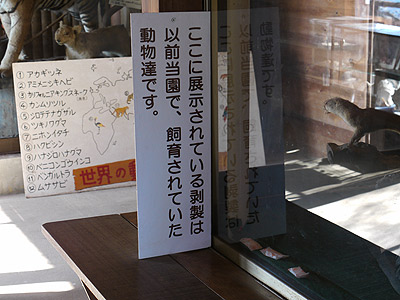 ここに展示されている剥製は
以前当園で、飼育されていた
動物達です。
① アカギツネ
② アミメニシキヘビ
③ カリフォルニアキングスネーク
④ カンムリヅル
⑤ シロテテナガザル
⑥ ツキノワグマ
⑦ ニホンイタチ
⑧ ハクビシン
⑨ ハナジロハナグマ
⑩ ベニコンゴウインコ
⑪ ベンガルトラ
⑫ ムササビ
世界の動